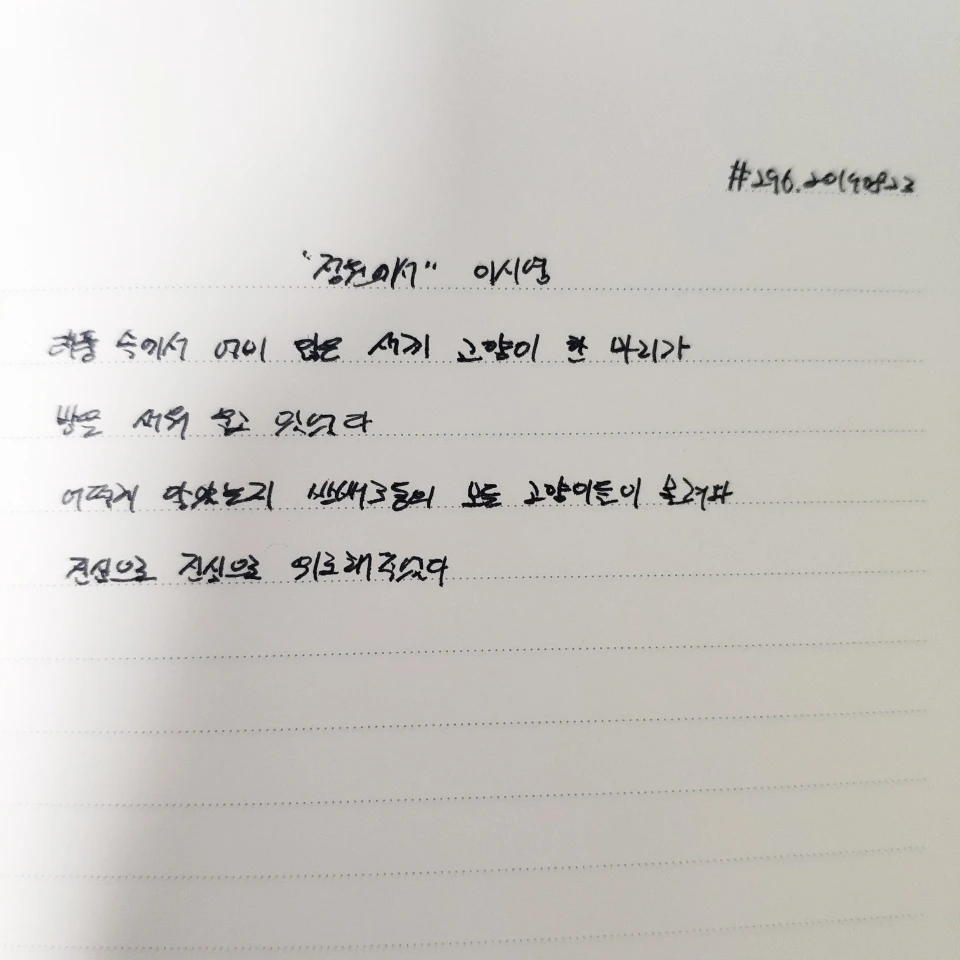 #296.20190823
"정원에서" 이시영
태풍 속에서 어미 잃은 새끼 고양이 한 마리가
밤을 새워 울고 있었다
어떻게 알았는지 모든 고양이들이 몰려와
진심으로 진심으로 위로해주었다